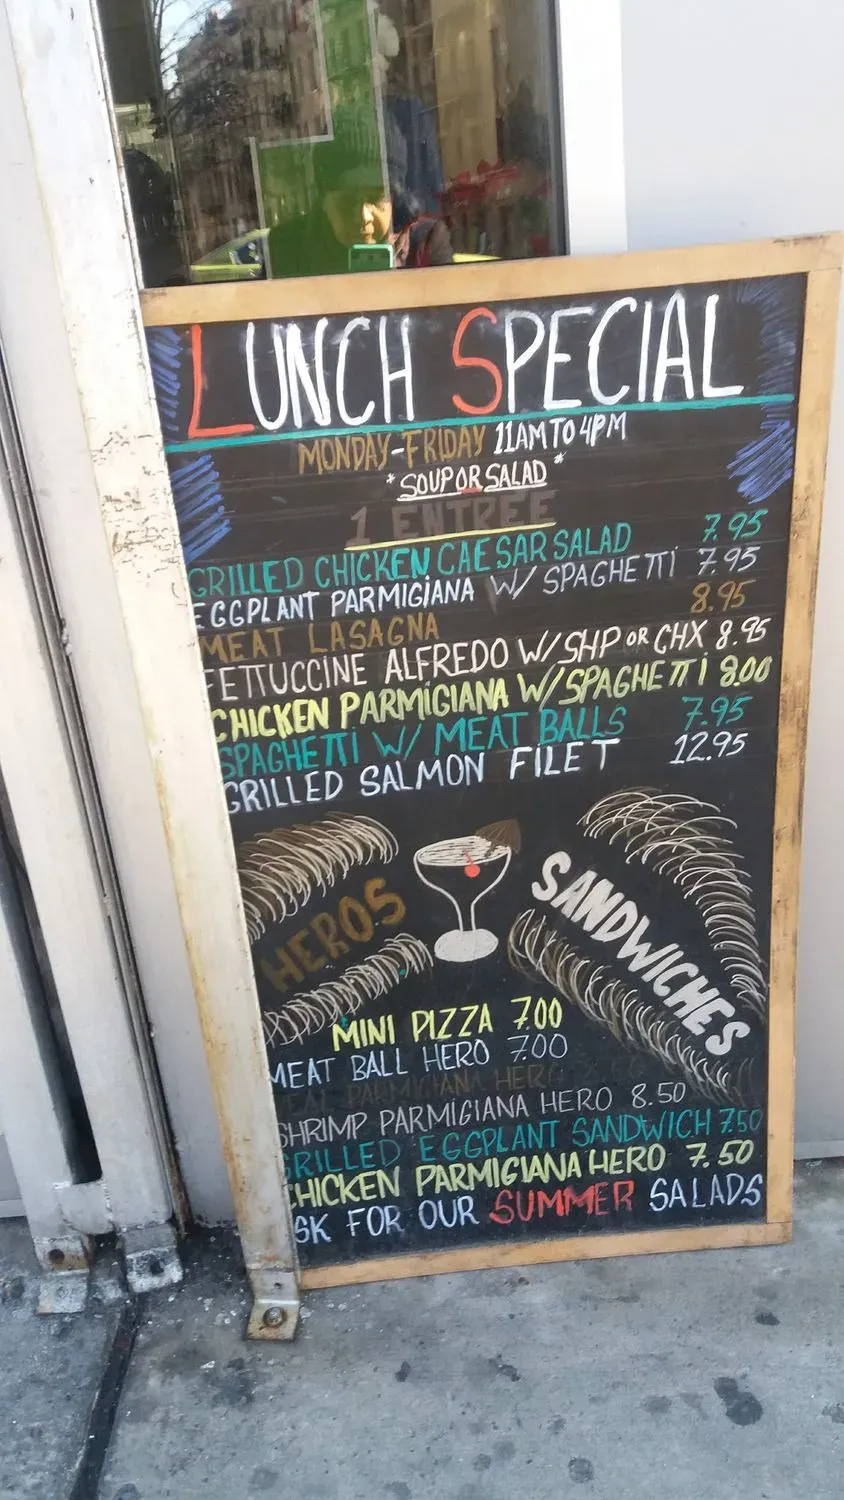 LUNCH SPECIAL
MONDAY-FRIDAY 11AM TO 4PM
*SOUP OR SALAD*
1 ENTREE
GRILLED CHICKEN CAESAR SALAD 7.95
EGGPLANT PARMIGIANA W/ SPAGHETTI 7.95
MEAT LASAGNA 8.95
FETTUCCINE ALFREDO W/SHP OR CHX 8.95
CHICKEN PARMIGIANA W/SPAGHETTI 8.00
SPAGHETTI W/ MEAT BALLS 7.95
GRILLED SALMON FILET 12.95
HEROS
SANDWICHES
MINI PIZZA 7.00
MEAT BALL HERO 7.00
VEAL PARMIGIANA HERO
SHRIMP PARMIGIANA HERO 8.50
GRILLED EGGPLANT SANDWICH 7.50
CHICKEN PARMIGIANA HERO 7.50
SK FOR OUR SUMMER SALADS